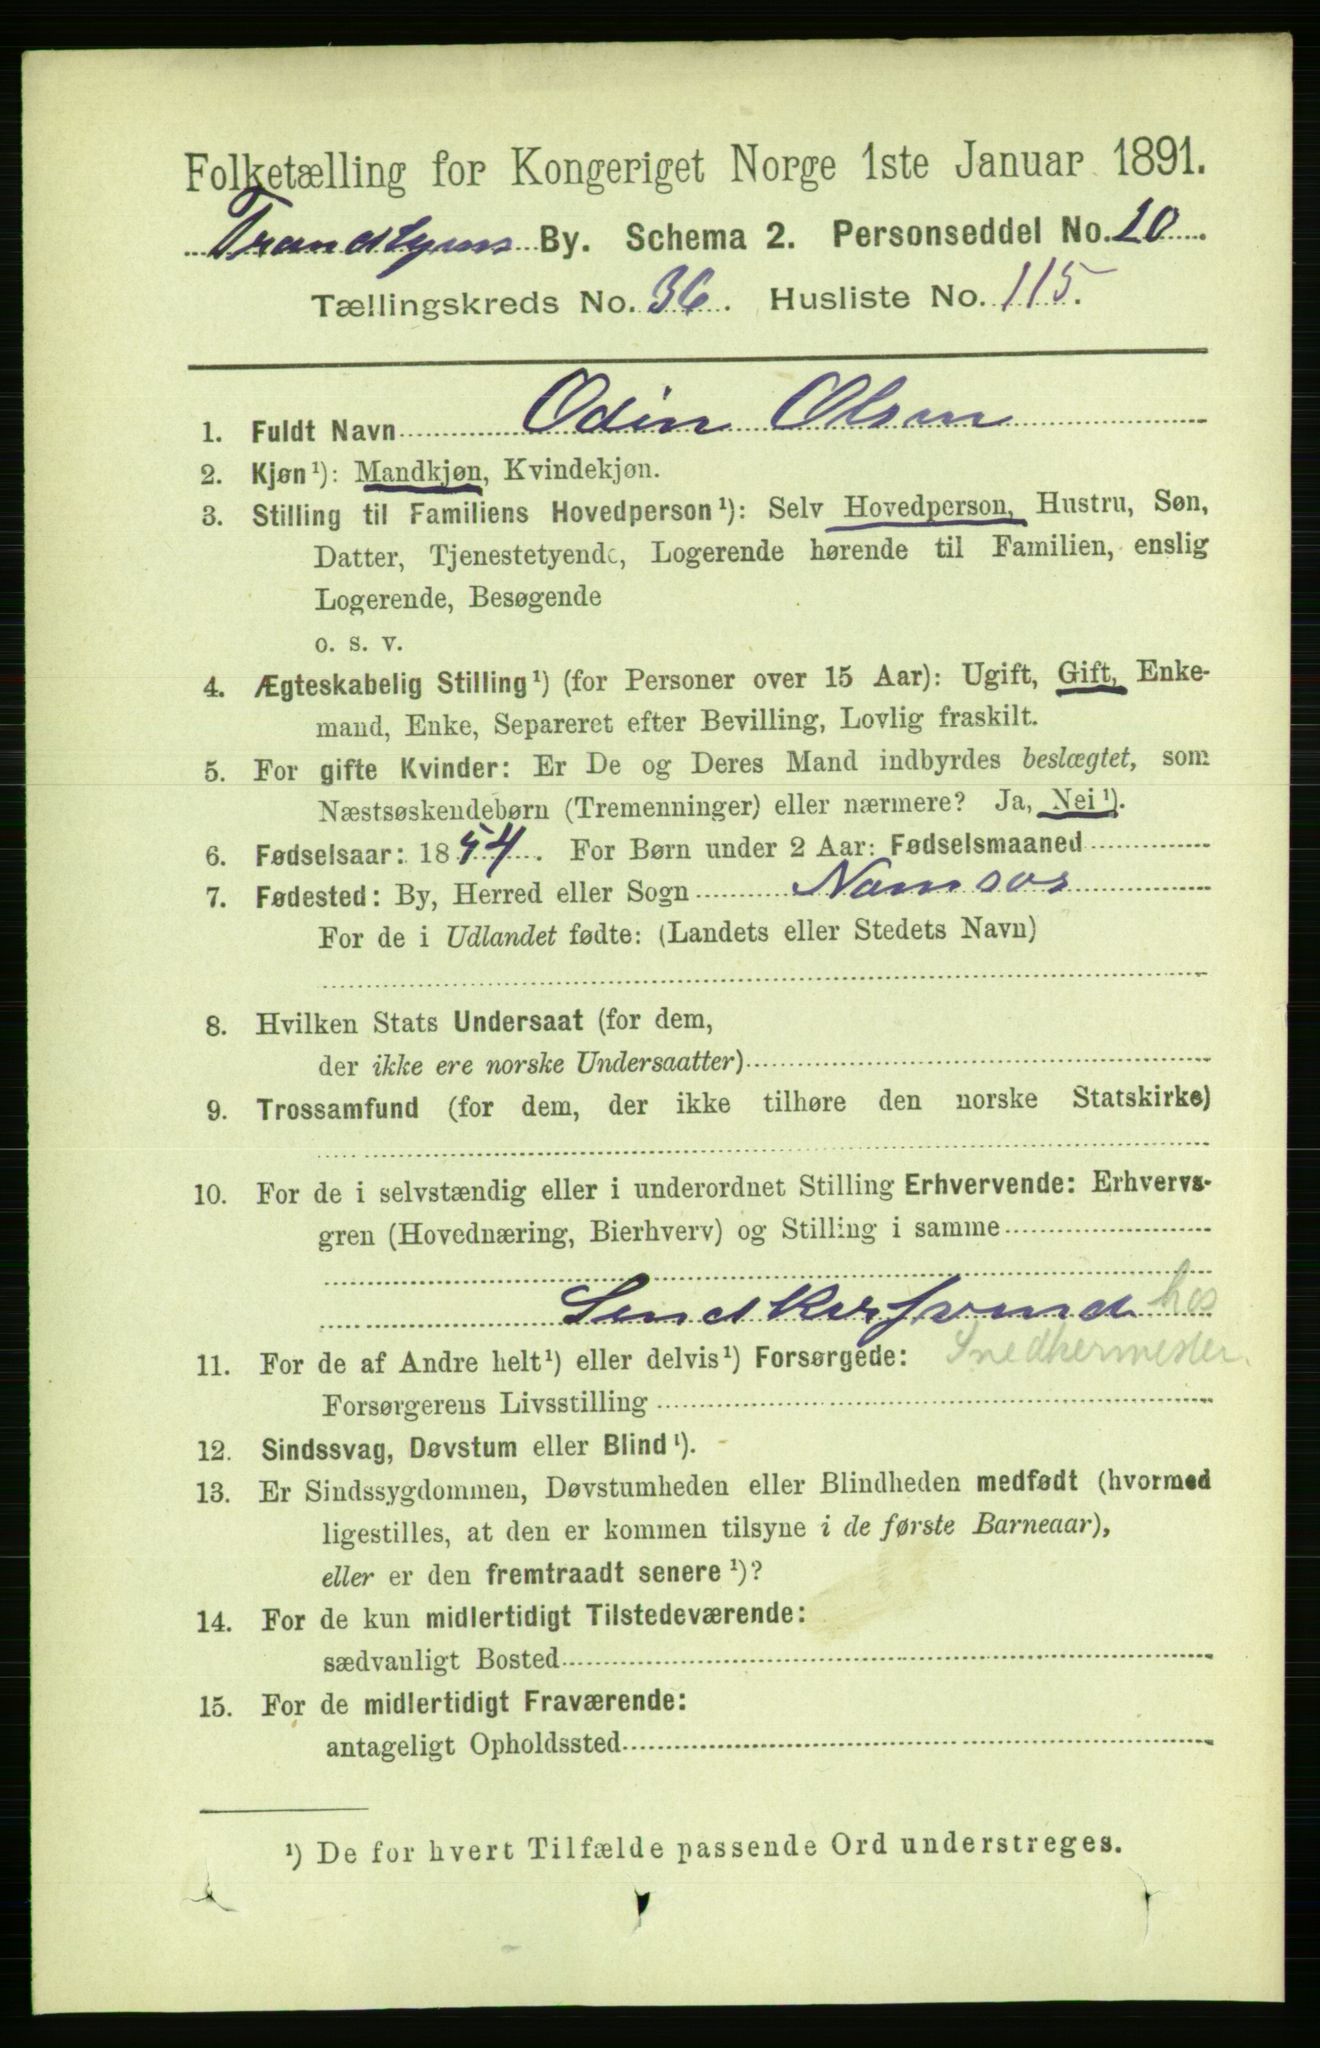 Folketælling for Kongeriget Norge 1ste Januar 1891.
Trondhjems By. Schema 2. Personseddel No. 20
Tællingskreds No. 36. Husliste No. 115.
1. Fuldt Navn Odin Olsen
2. Kjøn¹): Mandkjøn, Kvindekjøn.
3. Stilling til Familiens Hovedperson¹): Selv Hovedperson, Hustru, Søn,
Datter, Tjenestetyende, Logerende hørende til Familien, enslig
Logerende, Besøgende
o. s. v.
4. Ægteskabelig Stilling¹) (for Personer over 15 Aar): Ugift, Gift, Enke-
mand, Enke, Separeret efter Bevilling, Lovlig fraskilt.
5. For gifte Kvinder: Er De og Deres Mand indbyrdes beslægtet, som
Næstsøskendebørn (Tremenninger) eller nærmere? Ja, Nei¹).
6. Fødselsaar: 1854. For Børn under 2 Aar: Fødselsmaaned
7. Fødested: By, Herred eller Sogn Namsos
For de i Udlandet fødte: (Landets eller Stedets Navn)
8. Hvilken Stats Undersaat (for dem,
der ikke ere norske Undersaatter)
9. Trossamfund (for dem, der ikke tilhøre den norske Statskirke)
10. For de i selvstændig eller i underordnet Stilling Erhvervende: Erhvervs-
gren (Hovednæring, Bierhverv) og Stilling i samme
Sndkersvend hos
11. For de af Andre helt¹) eller delvis¹) Forsørgede: Snedkermester.
Forsørgerens Livsstilling
12. Sindssvag, Døvstum eller Blind¹).
13. Er Sindssygdommen, Døvstumheden eller Blindheden medfødt (hvormed
ligestilles, at den er kommen tilsyne i de første Barneaar),
eller er den fremtraadt senere¹)?
14. For de kun midlertidigt Tilstedeværende:
sædvanligt Bosted
15. For de midlertidigt Fraværende:
antageligt Opholdssted
¹) De for hvert Tilfælde passende Ord understreges.